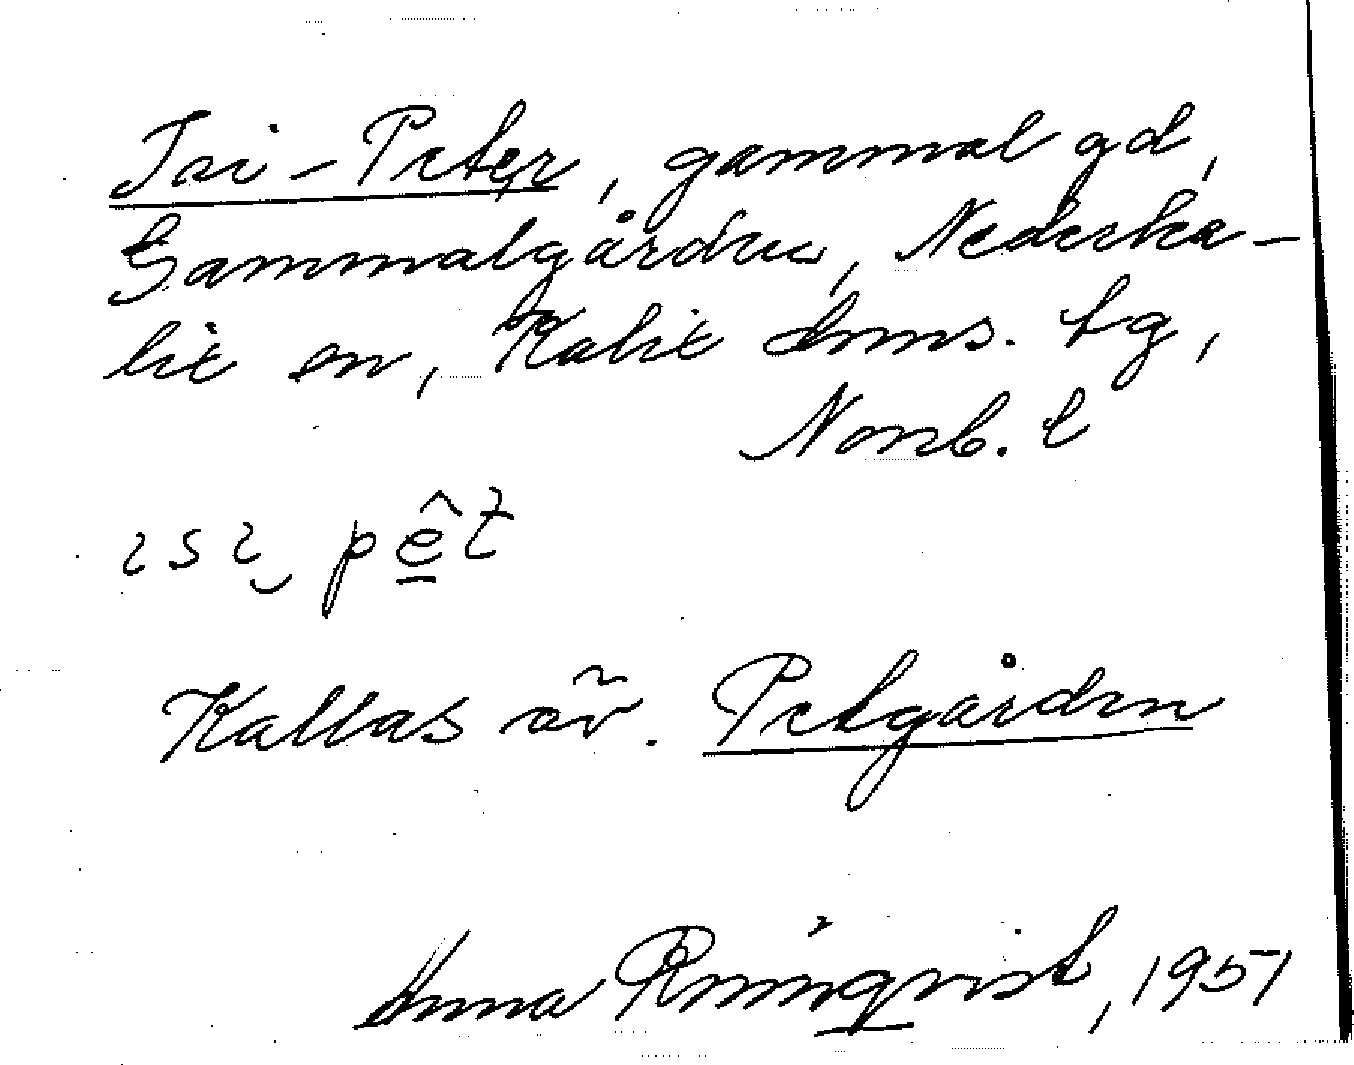 Isi-Peter, gammal gd,
Gammalgården, Nederka-
lix sn, Kalix dms. tg,
Norrb. l
ɩsɩ̯ pê̱t
Kallas äv. Petgården
Anna Rönnqvist, 1951